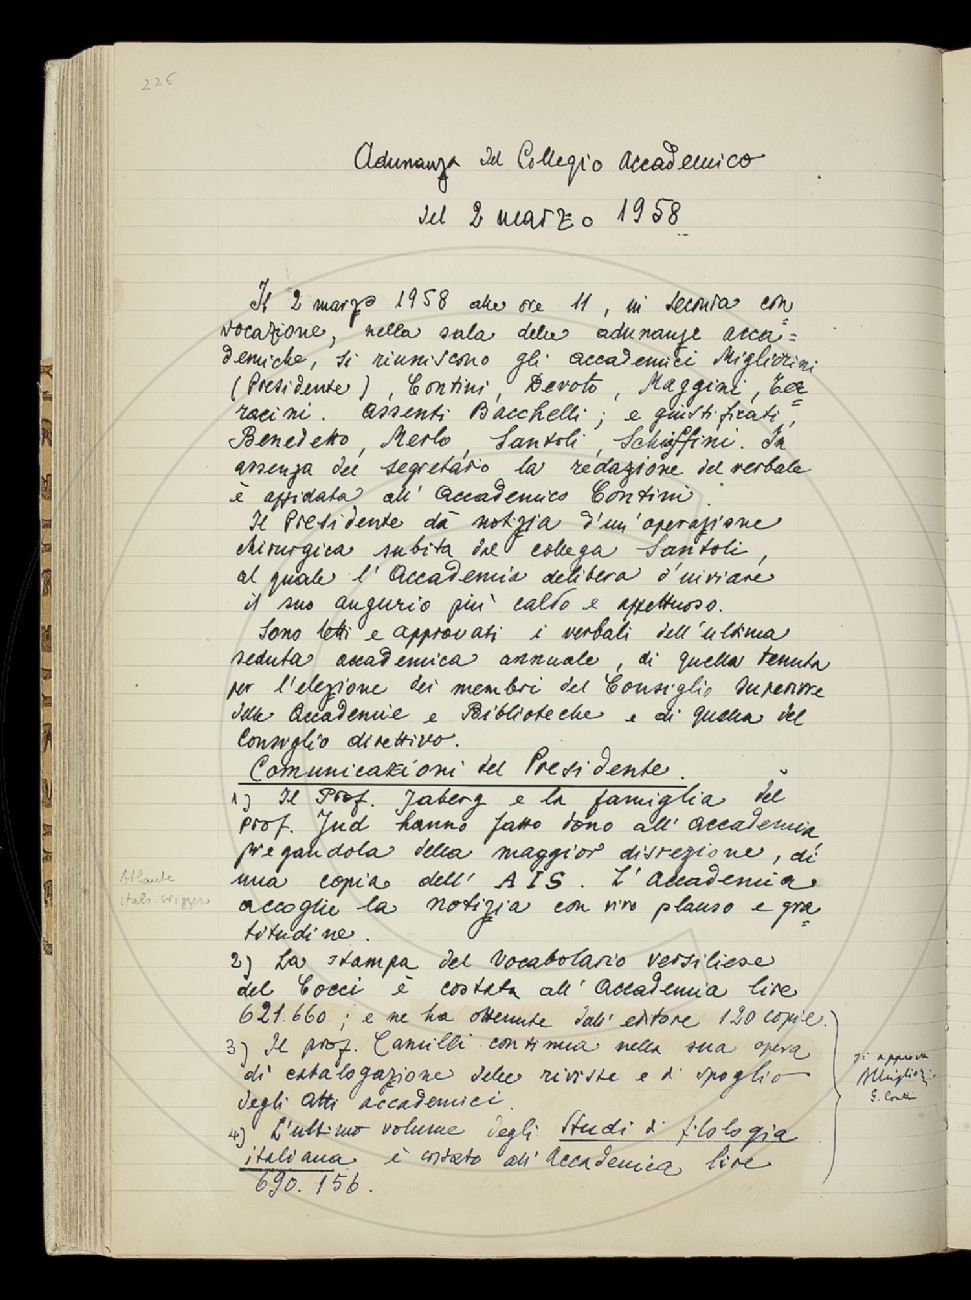 226
Adunanza del Collegio Accademico
del 2 marzo 1958
Il 2 marzo 1958 alle ore 11, in seconda con
vocazione, nella sala delle adunanze acca=
demiche, si riuniscono gli accademici Migliorini
(Presidente), Contini, Devoto, Maggini, Ter
racini. Assenti Bacchelli; e giustificati,
Benedetto, Merlo, Santoli, Schiaffini. In
assenza del segretario la redazione del verbale
è affidata all'Accademico Contini.
Il Presidente dà notizia d'un'operazione
chirurgica subita dal collega Santoli,
al quale l'Accademia delibera d'inviare
il suo augurio più caldo e affettuoso.
Sono letti e approvati i verbali dell'ultima
seduta accademica annuale, di quella tenuta
per l'elezione dei membri del Consiglio Superiore
delle Accademie e Biblioteche e di quella del
Consiglio direttivo.
Comunicazioni del Presidente.
1) Il Prof. Jaberg e la famiglia del
Prof. Jud hanno fatto dono all'Accademia,
pregandola della maggior discrezione, di
una copia dell'AIS. L'Accademia
accoglie la notizia con vivo plauso e gra=
titudine.
Atlante
italo-svizzero
2) La stampa del Vocabolario versiliese
del Cocci è costata all'Accademia lire
621.660; e ne ha ottenute dall'editore 120 copie.
3) Il prof. Camilli continua nella sua opera
di catalogazione delle riviste e di spoglio
degli Atti accademici.
4) L'ultimo volume degli Studi di filologia
italiana è costato all'Accademia lire
690.156.
si approva
BMigliorini
G. Contini